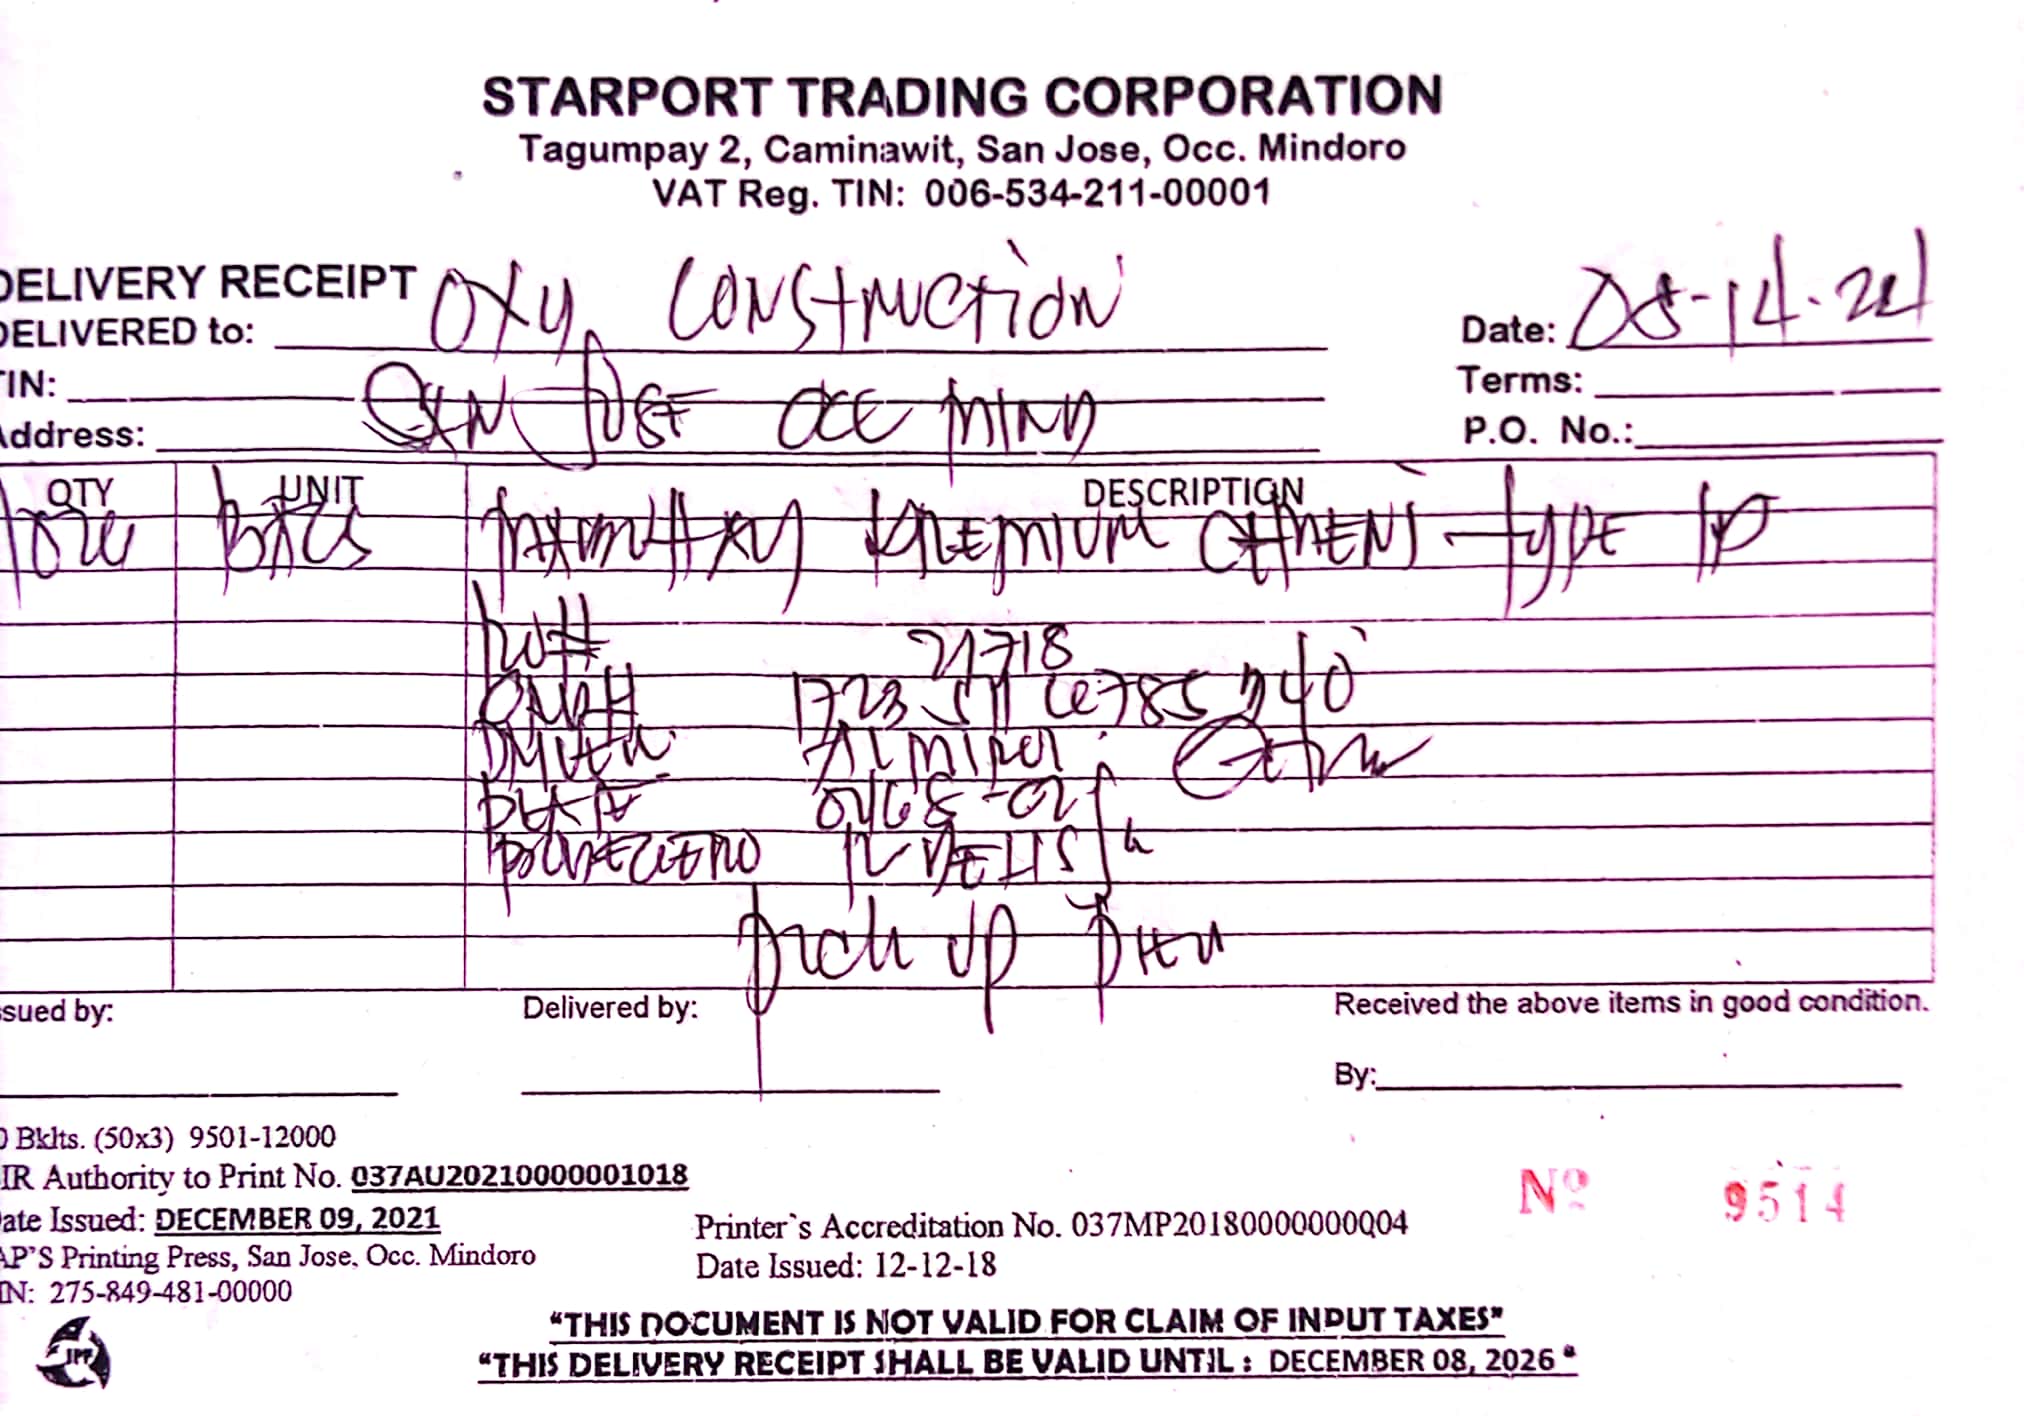 STARPORT TRADING CORPORATION
Tagumpay 2, Caminawit, San Jose, Occ. Mindoro
VAT Reg. TIN: 006-534-211-00001
DELIVERY RECEIPT
DELIVERED to: OXY CONSTRUCTION
Date: 08-14-24
TIN:
Terms:
Address: SAN JOSE OCC MIND
P.O. No.:
QTY UNIT DESCRIPTION
BAGS PREMIUM CEMENT TYPE 1P
21718
PLATE
Pick up
ssued by:
Delivered by:
Received the above items in good condition.
By:
0 Bklts. (50x3) 9501-12000
IR Authority to Print No. 037AU20210000001018
ate Issued: DECEMBER 09, 2021
AP'S Printing Press, San Jose, Occ. Mindoro
IN: 275-849-481-00000
Printer`s Accreditation No. 037MP20180000000004
Date Issued: 12-12-18
Nº 9514
JPP
"THIS DOCUMENT IS NOT VALID FOR CLAIM OF INPUT TAXES"
"THIS DELIVERY RECEIPT SHALL BE VALID UNTIL : DECEMBER 08, 2026 "